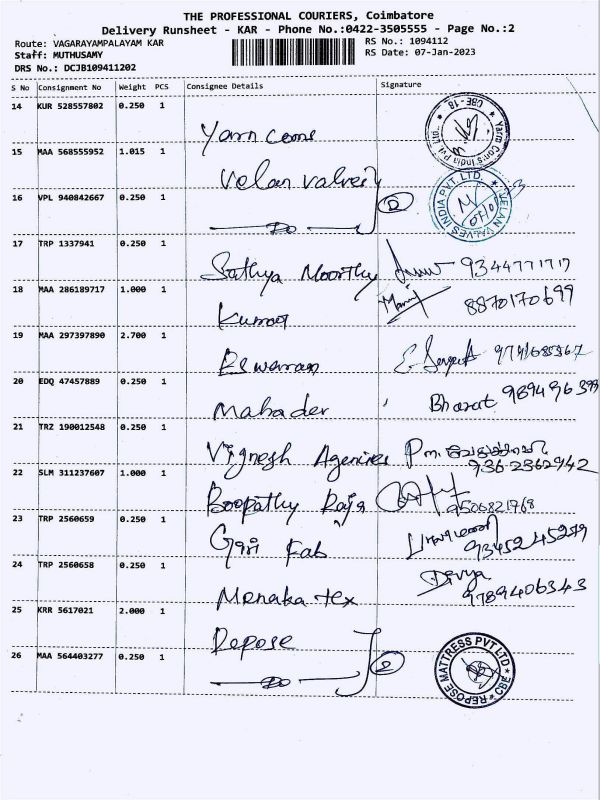 THE PROFESSIONAL COURIERS, Coimbatore
Delivery Runsheet - KAR - Phone No.:0422-3505555 - Page No.:2
Route: VAGARAYAMPALAYAM KAR RS No.: 1094112
Staff: MUTHUSAMY RS Date: 07-Jan-2023
DRS No.: DCJB109411202
S No Consignment No Weight PCS Consignee Details Signature
14 KUR 528557802 0.250 1
Yarn Coms
15 MAA 568555952 1.015 1
Velan valves
16 VPL 940842667 0.250 1
Do 2
VELAN VALVES INDIA PVT. LTD.
17 TRP 1337941 0.250 1
Sathya Moorthy 9344771717
18 MAA 286189717 1.000 1
Kumar 8870170699
19 MAA 297397890 2.700 1
Eswaran
20 EDQ 47457889 0.250 1
Mahadev Bharat 989496399
21 TRZ 190012548 0.250 1
Vignesh Agencies 9362362942
22 SLM 311237607 1.000 1
Boopathy Raja 9506821768
23 TRP 2560659 0.250 1
Giri Fab 9345245279
24 TRP 2560658 0.250 1
Menaka tex Divya 9789406343
25 KRR 5617021 2.000 1
Repose
26 MAA 564403277 0.250 1
Do 2
REPOSE MATTRESS PVT LTD CBE